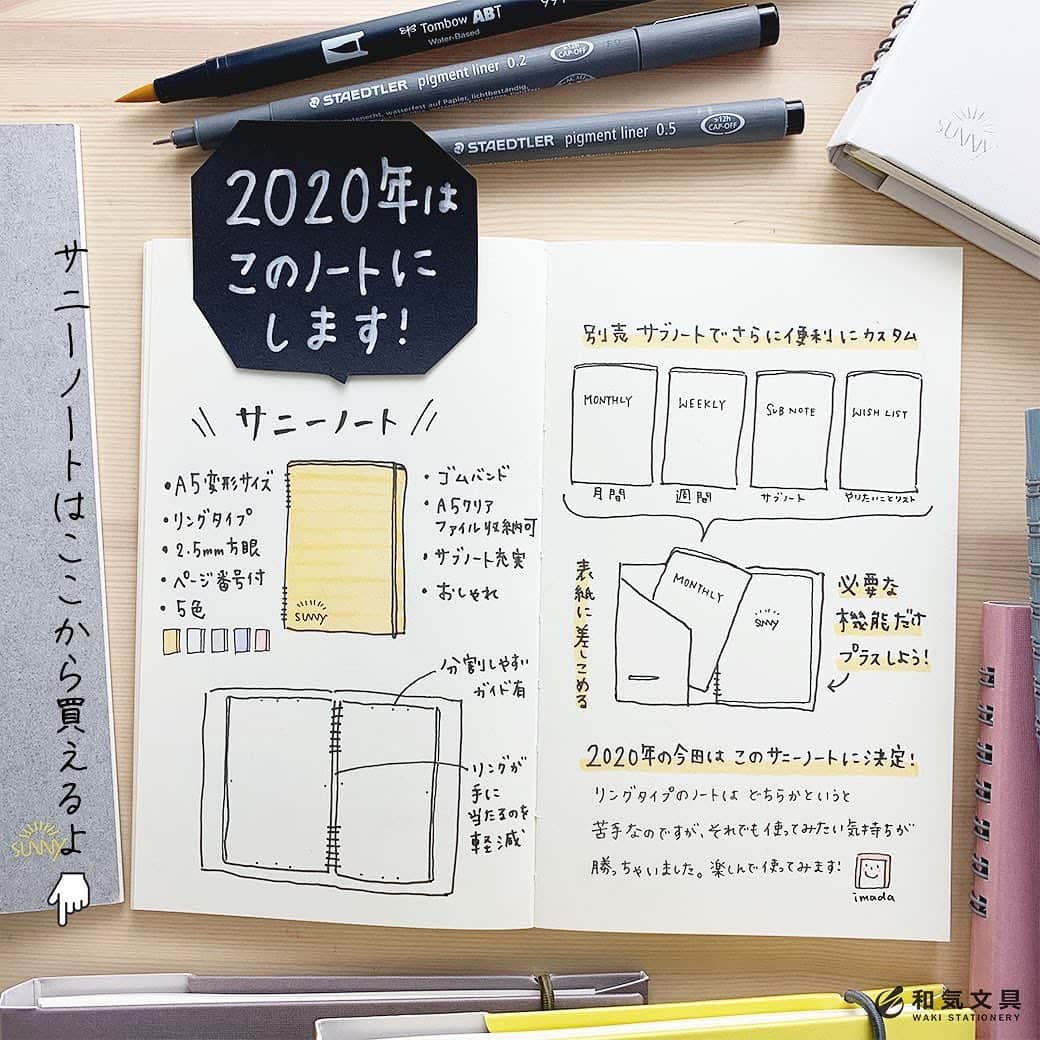 Tombow ABT
Water-Based
STAEDTLER pigment liner 0.2
>12h CAP-OFF
STAEDTLER pigment liner 0.5
>12h CAP-OFF
SUNNY
2020年は
このノートに
します!
サニーノートはここから買えるよ
SUNNY
サニーノート
・A5変形サイズ
・リングタイプ
・2.5mm方眼
・ページ番号付
・5色
SUNNY
・ゴムバンド
・A5クリア
ファイル収納可
・サブノート充実
・おしゃれ
分割しやすい
ガイド有
リングが
手に
当たるのを
軽減
別売 サブノートでさらに便利にカスタム
MONTHLY
WEEKLY
SUB NOTE
WISH LIST
月間
週間
サブノート
やりたいことリスト
表紙に差しこめる
MONTHLY
SUNNY
必要な
機能だけ
プラスしよう!
2020年の今田は このサニーノートに決定!
リングタイプのノートは どちらかというと
苦手なのですが、それでも使ってみたい気持ちが
勝っちゃいました。楽しんで使ってみます!
imada
和気文具
WAKI STATIONERY